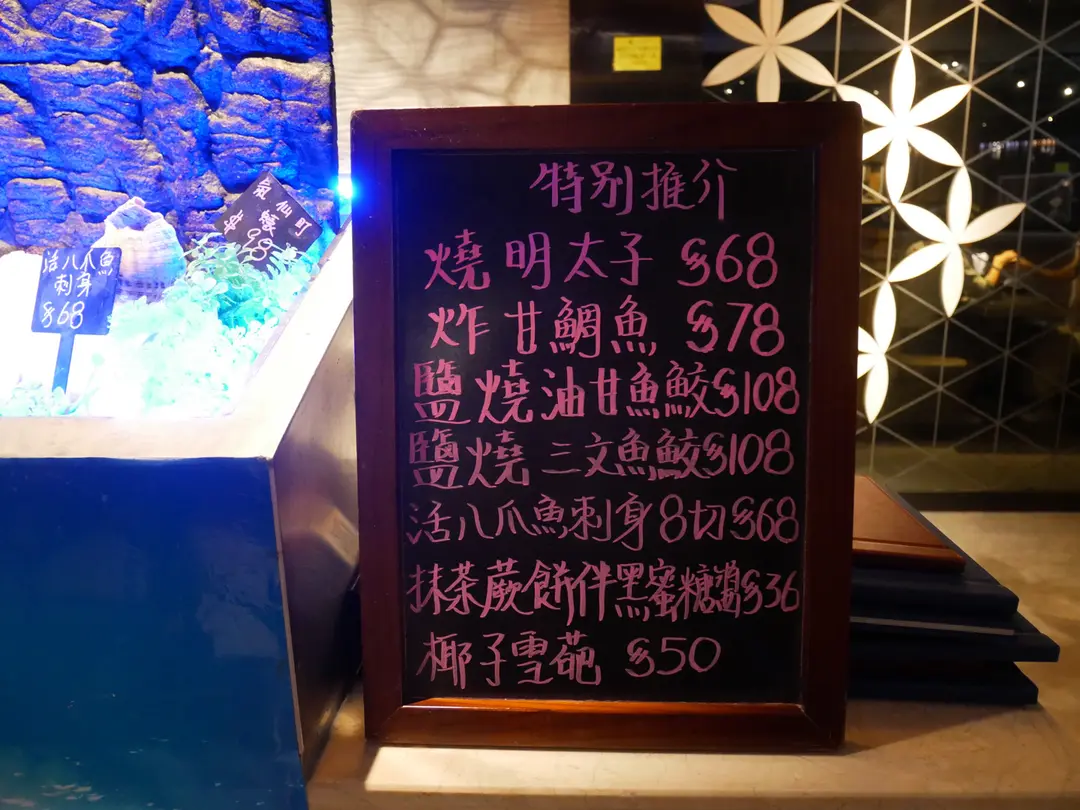 特别推介
燒明太子 $68
炸甘鯛魚 $78
鹽燒油甘魚鮫$108
鹽燒三文魚鮫$108
活八爪魚刺身8切$68
抹茶蕨餅伴黑蜜糖醬$36
椰子雪葩 $50
活八爪魚
刺身
$68
氣仙町